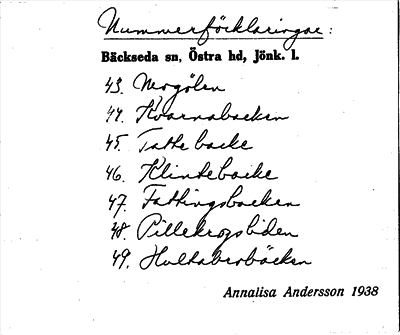 Nummerförklaringar:
Bäckseda sn, Östra hd, Jönk. l.
43. Norgölen
44. Kvarnabacken
45. Tattebacke
46. Klintebacke
47. Fattingsbacken
48. Pillekrogsliden
49. Hultaberbäcken
Annalisa Andersson 1938